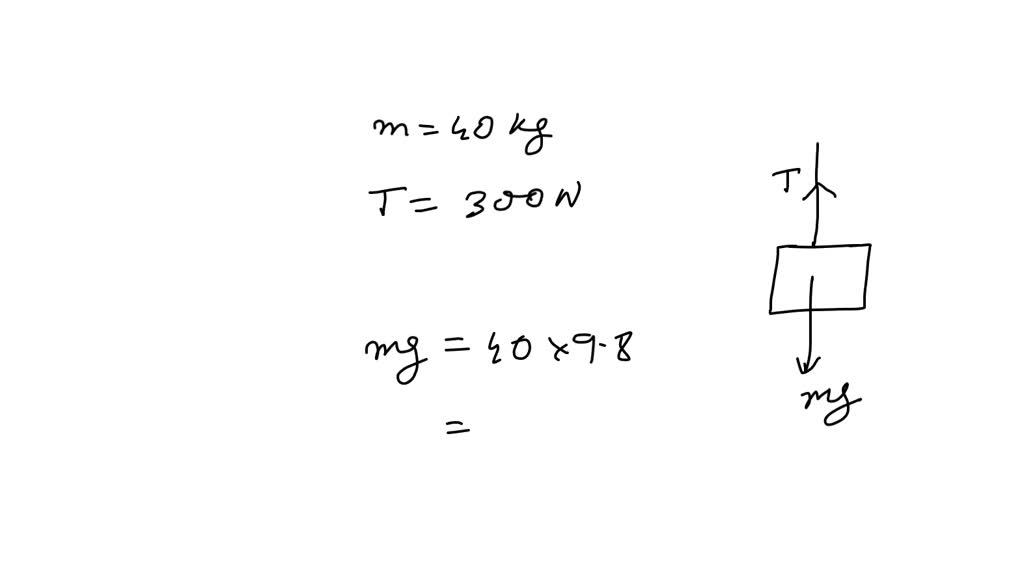 m = 40 kg
T = 300 N
T
mg = 40 × 9.8
mg
=